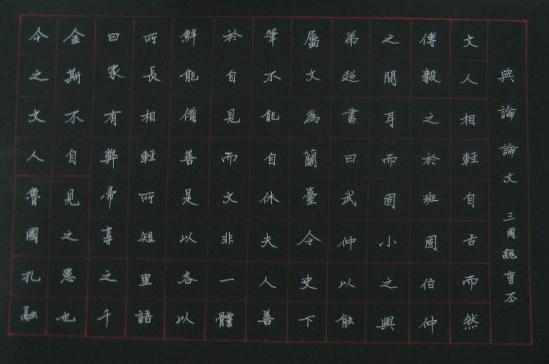 典論論文 三國魏曹丕
文人相輕自古而然
傅毅之於班固伯仲
之間耳而固小之與
弟超書曰武仲以能
屬文為蘭臺令史下
筆不能自休夫人善
於自見而文非一體
鮮能備善是以各以
所長相輕所短里語
曰家有弊帚享之千
金斯不自見之患也
今之文人魯國孔融